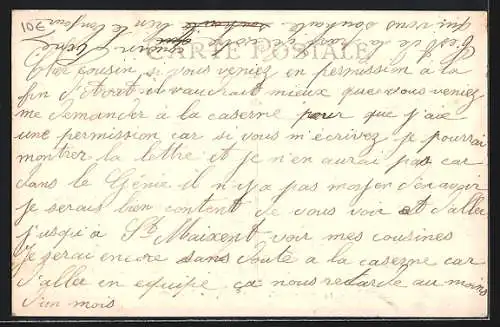 10€
CARTE POSTALE
Cher cousin, si vous veniez en permission à la
fin d'Avrat il vaudrait mieux que vous veniez
me demander à la caserne pour que j'aie
une permission car si vous m'écrivez je pourrai
montrer la lettre et je n'en aurai pas car
dans le Génie il n'y a pas moyen d'en avoir
je serais bien content de vous voir et d'aller
jusqu'à St Maixent voir mes cousines
je serai encore sans doute à la caserne car
d'aller en équipe ça nous retarde au moins
d'un mois
qui vous souhaite le bonjour